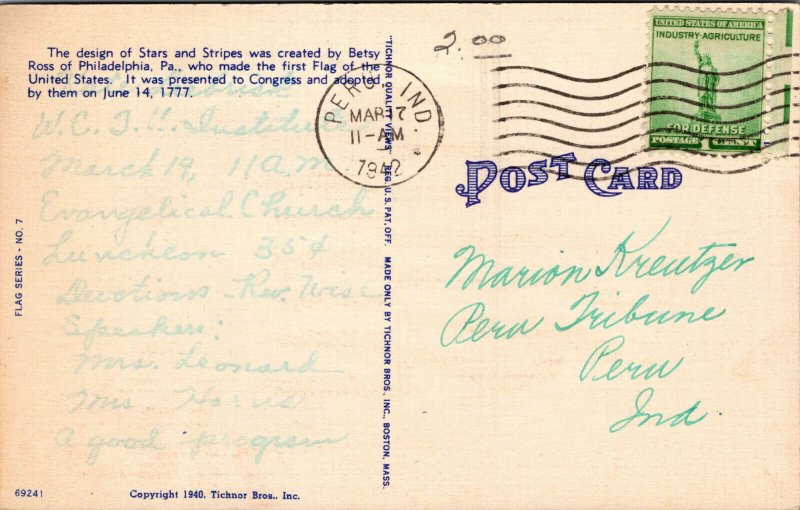 The design of Stars and Stripes was created by Betsy
Ross of Philadelphia, Pa., who made the first Flag of the
United States. It was presented to Congress and adopted
by them on June 14, 1777.
W. C. T. U. Institute
March 19, 11 A. M.
Evangelical Church
Luncheon 35¢
Devotions - Rev. Wise
Speakers:
Mrs. Leonard
Mrs. Harris
A good program
FLAG SERIES - NO. 7
69241
Copyright 1940, Tichnor Bros., Inc.
"TICHNOR QUALITY VIEWS" REG. U. S. PAT. OFF. MADE ONLY BY TICHNOR BROS., INC., BOSTON, MASS.
2.00
PERU, IND.
MAR 17
11-AM
1942
UNITED STATES OF AMERICA
INDUSTRY-AGRICULTURE
FOR DEFENSE
POSTAGE 1 CENT
POST CARD
Marion Kreutzer
Peru Tribune
Peru
Ind.